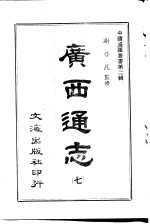 中國邊疆叢書第二輯
謝啓昆監修
廣西通志
(七)
文海出版社印行